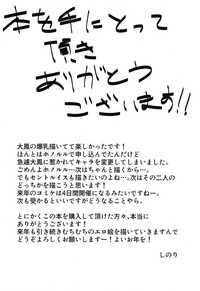 本を手にとって
頂き
ありがとう
ございます!!
大鳳の爆乳描いてて楽しかったです!
ほんとはホノルルで申し込んでたんだけど
急遽大鳳に惹かれてキャラを変更してしまいました。
ごめんよホノルル…次はちゃんと描くから…。
でもセントルイスも描きたいのよね…。次はその二人の
どっちかを描こうと思います!
来年のコミケは4日間開催になるみたいですねー。
次も受かるといいですがどうなることやら。
とにかくこの本を購入して頂けた方々、本当に
ありがとうございます!
来年も引き続きむちむちのエロ絵を描いていきますんで
どうぞよろしくお願いしますー!よいお年を!
しのり